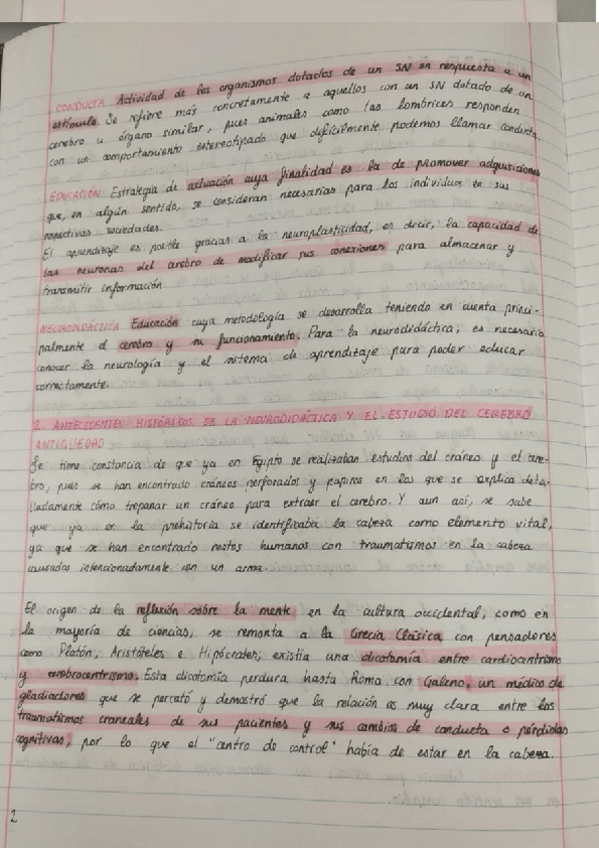 CONDUCTA Actividad de los organismos dotados de un SN en respuesta a un
estímulo. Se refiere más concretamente a aquellos con un SN dotado de un
cerebro u órgano similar, pues animales como las lombrices responden
con un comportamiento estereotipado que difícilmente podemos llamar conducta.
EDUCACIÓN Estrategia de actuación cuya finalidad es la de promover adquisiciones
que, en algún sentido, se consideran necesarias para los individuos en sus
respectivas sociedades.
El aprendizaje es posible gracias a la neuroplasticidad, es decir, la capacidad de
las neuronas del cerebro de modificar sus conexiones para almacenar y
transmitir información.
NEURODIDÁCTICA Educación cuya metodología se desarrolla teniendo en cuenta princi-
palmente el cerebro y su funcionamiento. Para la neurodidáctica, es necesario
conocer la neurología y el sistema de aprendizaje para poder educar
correctamente.
2. ANTECEDENTES HISTÓRICOS DE LA NEURODIDÁCTICA Y EL ESTUDIO DEL CEREBRO
ANTIGÜEDAD
Se tiene constancia de que ya en Egipto se realizaban estudios del cráneo y el cere-
bro, pues se han encontrado cráneos perforados y papiros en los que se explica deta-
lladamente cómo trepanar un cráneo para extraer el cerebro. Y aun así, se sabe
que ya en la prehistoria se identificaba la cabeza como elemento vital,
ya que se han encontrado restos humanos con traumatismos en la cabeza
causados intencionadamente con un arma.
El origen de la reflexión sobre la mente en la cultura occidental, como en
la mayoría de ciencias, se remonta a la Grecia Clásica con pensadores
como Platón, Aristóteles e Hipócrates; existía una dicotomía entre cardiocentrismo
y cerebrocentrismo. Esta dicotomía perdura hasta Roma con Galeno, un médico de
gladiadores que se percató y demostró que la relación es muy clara entre los
traumatismos craneales de sus pacientes y sus cambios de conducta o pérdidas
cognitivas, por lo que el "centro de control" había de estar en la cabeza.
2